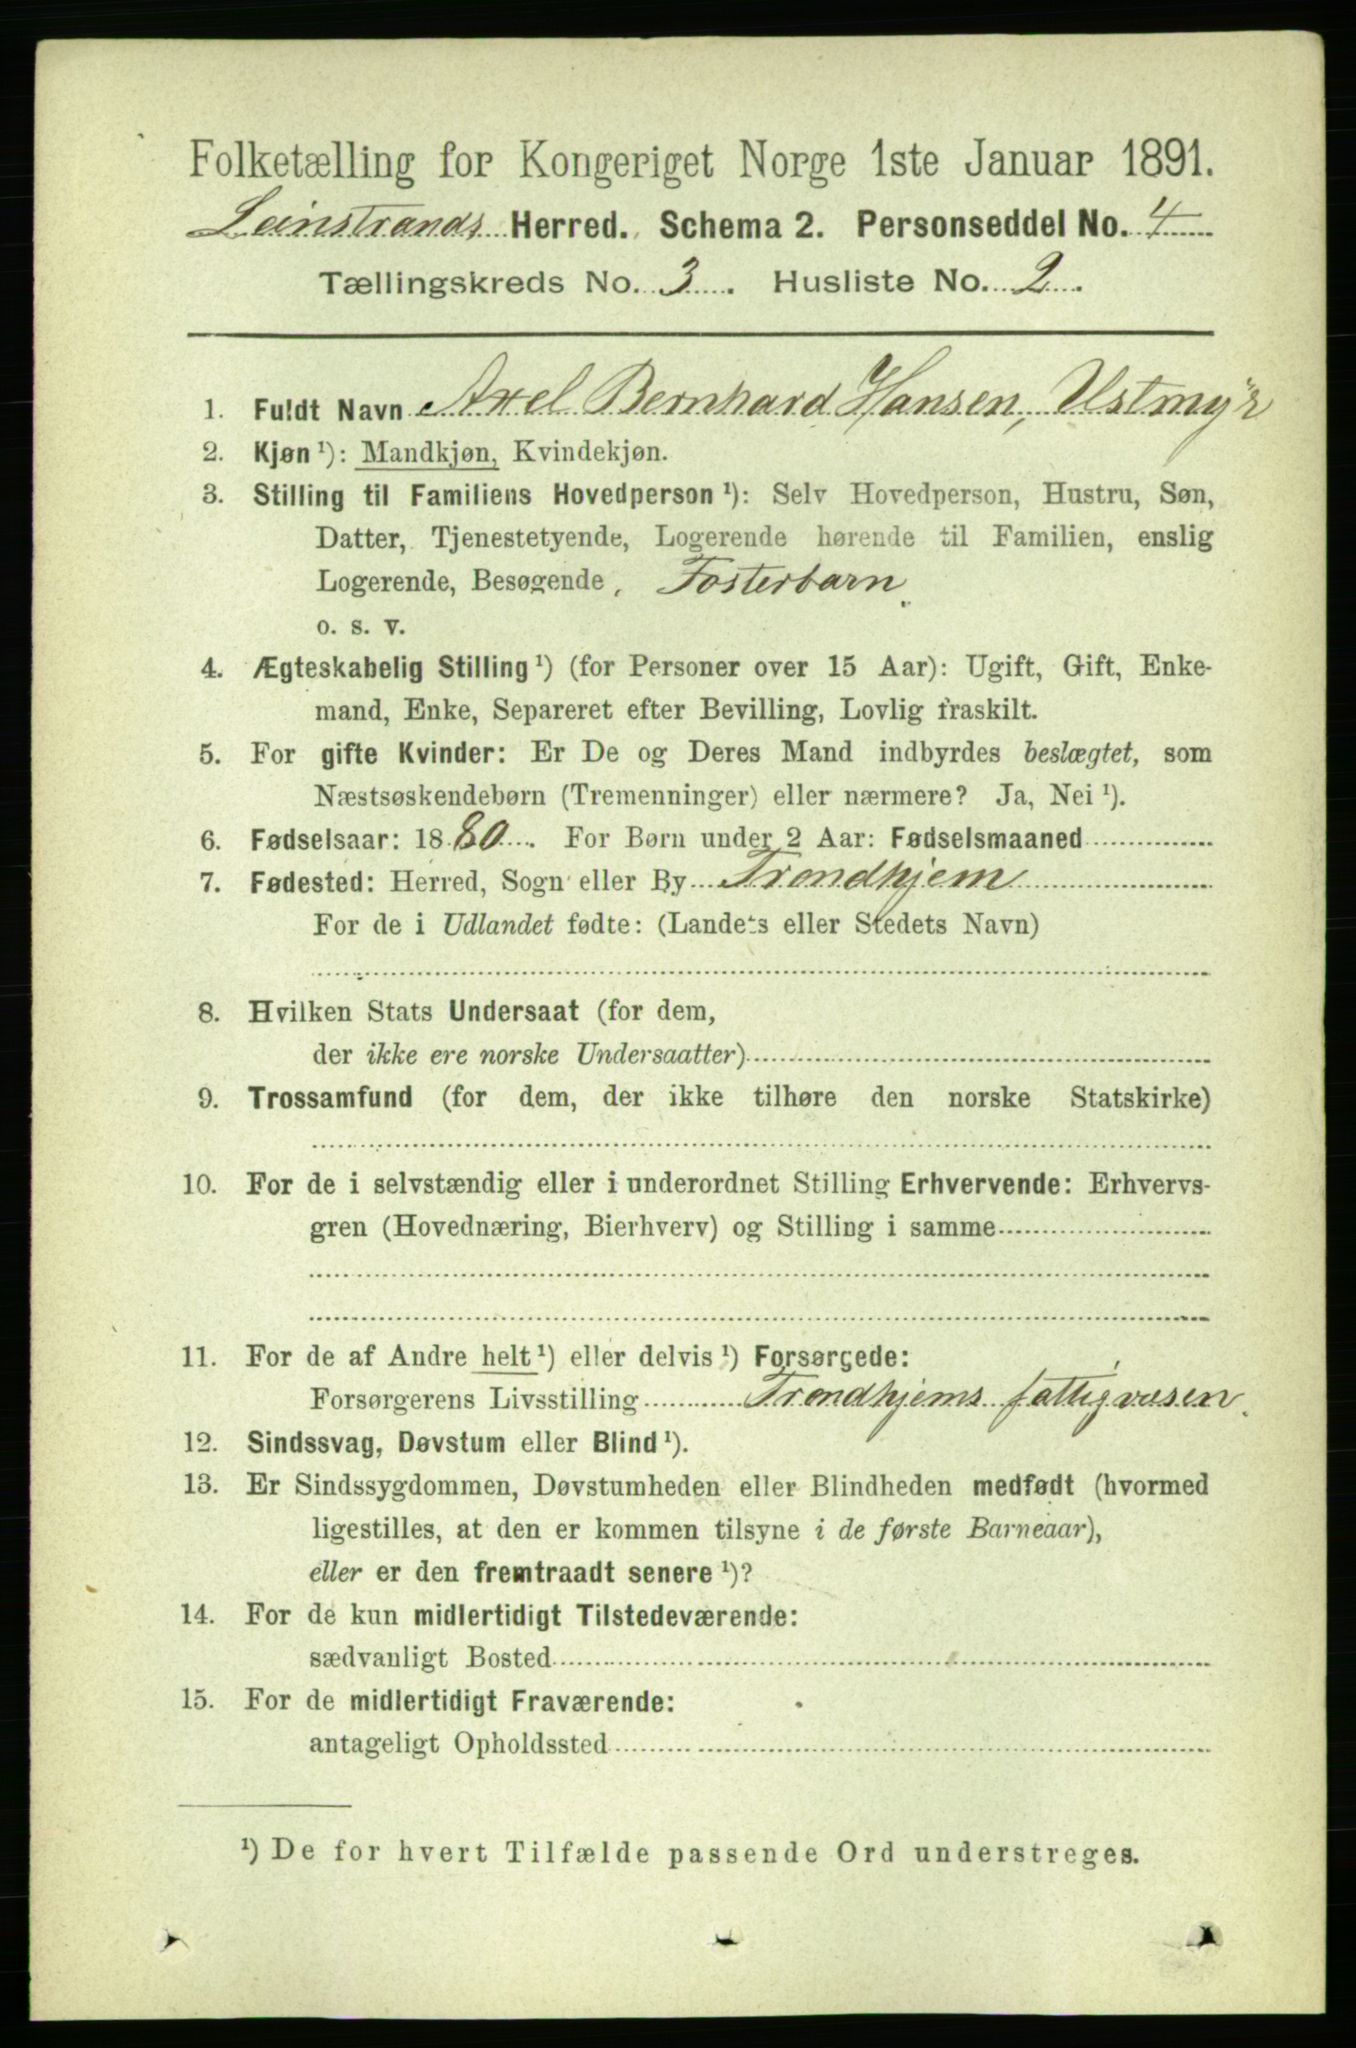 Folketælling for Kongeriget Norge 1ste Januar 1891.
Leinstrands Herred. Schema 2. Personseddel No. 4
Tællingskreds No. 3. Husliste No. 2.
1. Fuldt Navn Axel Bernhard Hansen, Ustmyr
2. Kjøn ¹): Mandkjøn, Kvindekjøn.
3. Stilling til Familiens Hovedperson ¹): Selv Hovedperson, Hustru, Søn,
Datter, Tjenestetyende, Logerende hørende til Familien, enslig
Logerende, Besøgende, Fosterbarn.
o. s. v.
4. Ægteskabelig Stilling ¹) (for Personer over 15 Aar): Ugift, Gift, Enke-
mand, Enke, Separeret efter Bevilling, Lovlig fraskilt.
5. For gifte Kvinder: Er De og Deres Mand indbyrdes beslægtet, som
Næstsøskendebørn (Tremenninger) eller nærmere? Ja, Nei ¹).
6. Fødselsaar: 1880. For Børn under 2 Aar: Fødselsmaaned
7. Fødested: Herred, Sogn eller By Trondhjem
For de i Udlandet fødte: (Landets eller Stedets Navn)
8. Hvilken Stats Undersaat (for dem,
der ikke ere norske Undersaatter)
9. Trossamfund (for dem, der ikke tilhøre den norske Statskirke)
10. For de i selvstændig eller i underordnet Stilling Erhvervende: Erhvervs-
gren (Hovednæring, Bierhverv) og Stilling i samme
11. For de af Andre helt ¹) eller delvis ¹) Forsørgede:
Forsørgerens Livsstilling Trondhjems fattigvæsen.
12. Sindssvag, Døvstum eller Blind ¹).
13. Er Sindssygdommen, Døvstumheden eller Blindheden medfødt (hvormed
ligestilles, at den er kommen tilsyne i de første Barneaar),
eller er den fremtraadt senere ¹)?
14. For de kun midlertidigt Tilstedeværende:
sædvanligt Bosted
15. For de midlertidigt Fraværende:
antageligt Opholdssted
¹) De for hvert Tilfælde passende Ord understreges.